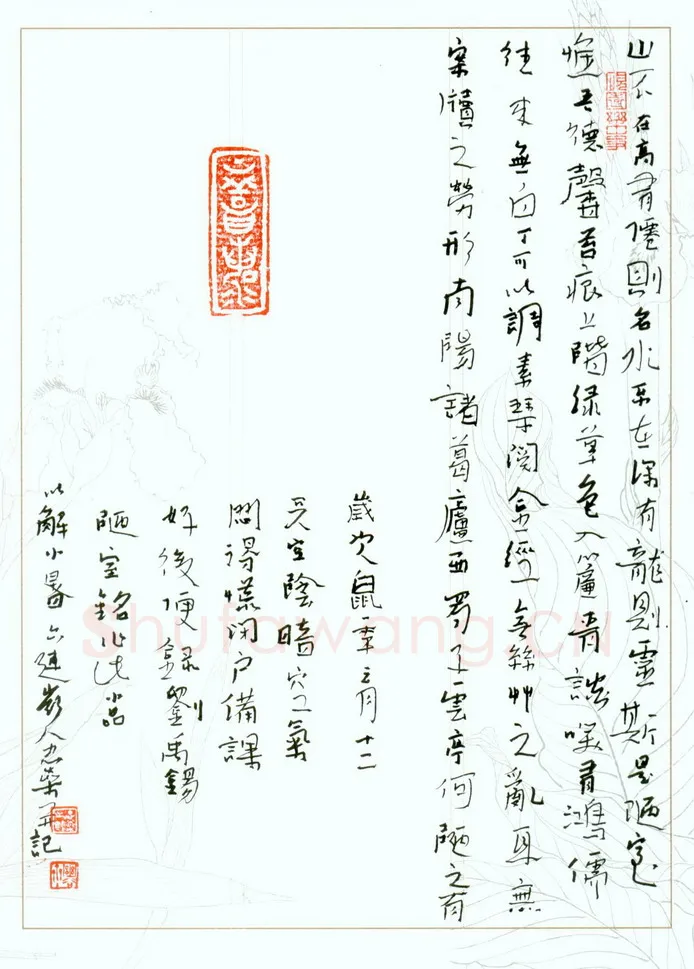 山不在高有僊則名水不在深有龍則靈斯是陋室
惟吾德馨苔痕上階緑草色入簾青談笑有鴻儒
往来無白丁可以調素琴閲金經無絲竹之亂耳無
案牘之勞形南陽諸葛廬西蜀子雲亭何陋之有
歲次鼠年月十二
天空陰暗空氣
悶得慌閉户備課
好後便録劉禹錫
陋室銘小品
以解小暑記
Shufawang.CN